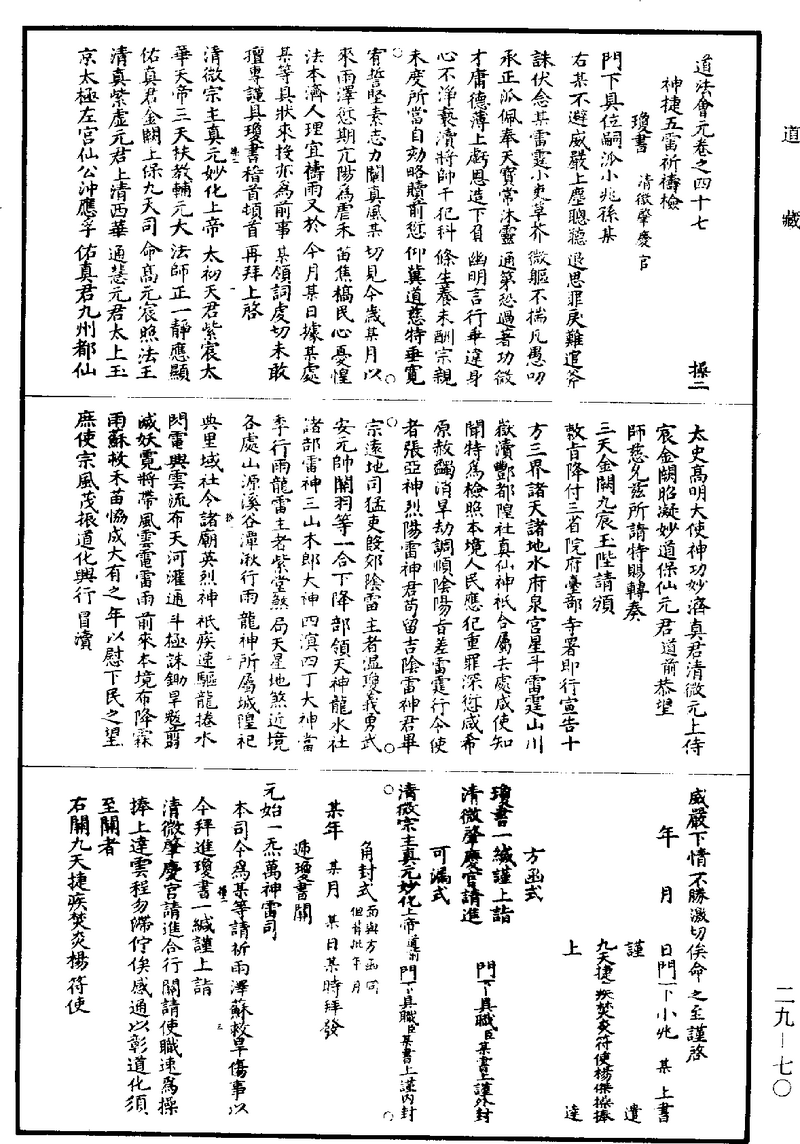 道藏
道法會元卷之四十七
操二
神捷五雷祈禱檢
瓊書 清微肇慶官
門下具位嗣派小兆孫某
右某不避威嚴上塵聰聽退思罪戾難逭斧
誅伏念某雷霆小吏草芥微軀不揣凡愚叨
承正派佩奉天寶常沐靈通第愆過著功微
才庸德薄上虧恩造下負幽明言行乖違身
心不淨褻瀆將帥干犯科條生養未酬宗親
未度所當自劾略贖前愆仰冀道慈特垂寬
宥誓堅素志力闡真風某切見今歲某月以
來雨澤愆期亢陽為虐禾苗焦槁民心憂惶
法本濟人理宜禱雨又於今月某日據某處
某等具狀來投亦為前事某領詞虔切未敢
擅專謹具瓊書稽首頓首再拜上啓
清微宗主真元妙化上帝太初天君紫宸太
華天帝三天扶教輔元大法師正一靜應顯
佑真君金闕上保九天司命高元宸照法王
清真紫虛元君上清西華通慧元君太上玉
京太極左宮仙公沖應孚佑真君九州都仙
太史高明大使神功妙濟真君清微元上侍
宸金闕昭凝妙道保仙元君道前恭望
師慈允茲所請特賜轉奏
三天金闕九宸玉陛請頒
敕旨降付三省院府臺部寺署即行宣告十
方三界諸天諸地水府泉宮星斗雷霆山川
嶽瀆酆都隍社真仙神祇合屬去處咸使知
聞特為檢照本境人民應犯重罪深愆咸希
原赦蠲消旱劫調順陰陽旨差雷霆行令使
者張亞神烈陽雷神君苟留吉陰雷神君畢
宗遠地司猛吏殷郊陰雷主者温瓊義勇武
安元帥關羽等一合下降部領天神龍水社
諸部雷神三山木郎大神四溟四丁大神當
季行雨龍雷主者紫堂煞局天星地煞近境
各處山源溪谷潭湫行雨龍神所屬城隍祀
典里域社令諸廟英烈神祇疾速驅龍捲水
閃電興雲流布天河灌通斗極誅鋤旱魃翦
滅妖霓將帶風雲電雷雨前來本境布降霖
雨蘇救禾苗恊成大有之年以慰下民之望
庶使宗風茂振道化興行冒瀆
威嚴下情不勝激切俟命之至謹啓
年 月 日門下小兆 某 上書
謹 遣
九天捷疾焚炎符使楊傑操捧
上 達
方函式
瓊書一緘謹上詣
清微肇慶宮請進
門下具職臣某書上謹外封
可漏式
清微宗主真元妙化上帝道前門下具職臣某書上謹内封
角封式 面與方函同但背批年月
某年 某月 某日某時拜發
遞瓊書關
元始一炁萬神雷司
本司今為某等請祈雨澤蘇救旱傷事以
今拜進瓊書一緘謹上詣
清微肇慶宮請進合行關請使職速為操
捧上達雲程勿滯佇俟感通以彰道化須
至關者
右關九天捷疾焚炎楊符使
二九—七〇